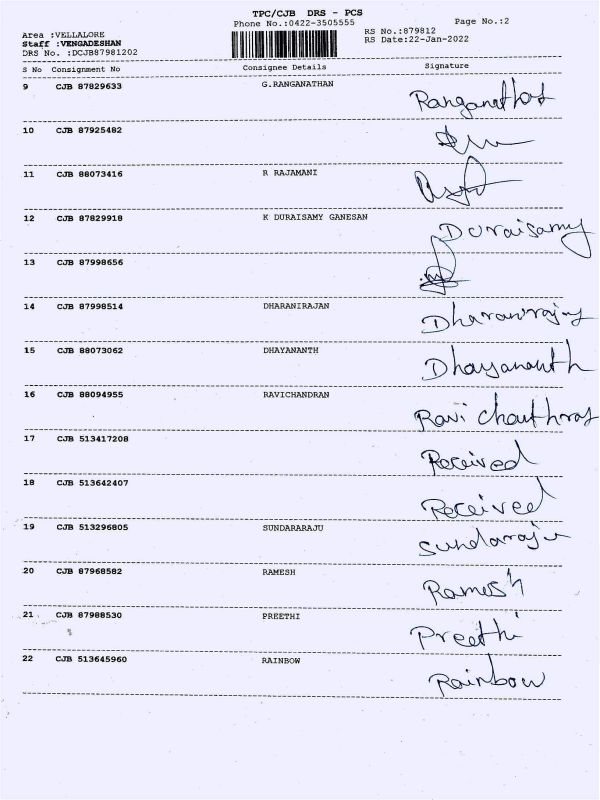 TPC/CJB DRS - PCS
Phone No.:0422-3505555 Page No.:2
Area :VELLALORE RS No.:879812
Staff :VENGADESHAN RS Date:22-Jan-2022
DRS No. :DCJB87981202
S No Consignment No Consignee Details Signature
9 CJB 87829633 G.RANGANATHAN
Ranganathan
10 CJB 87925482
11 CJB 88073416 R RAJAMANI
12 CJB 87829918 K DURAISAMY GANESAN
Duraisamy
13 CJB 87998656
14 CJB 87998514 DHARANIRAJAN
Dharanirajan
15 CJB 88073062 DHAYANANTH
Dhayananth
16 CJB 88094955 RAVICHANDRAN
Ravi
17 CJB 513417208
Received
18 CJB 513642407
Received
19 CJB 513296805 SUNDARARAJU
Sundararaju
20 CJB 87968582 RAMESH
Ramesh
21 CJB 87988530 PREETHI
Preethi
22 CJB 513645960 RAINBOW
Rainbow